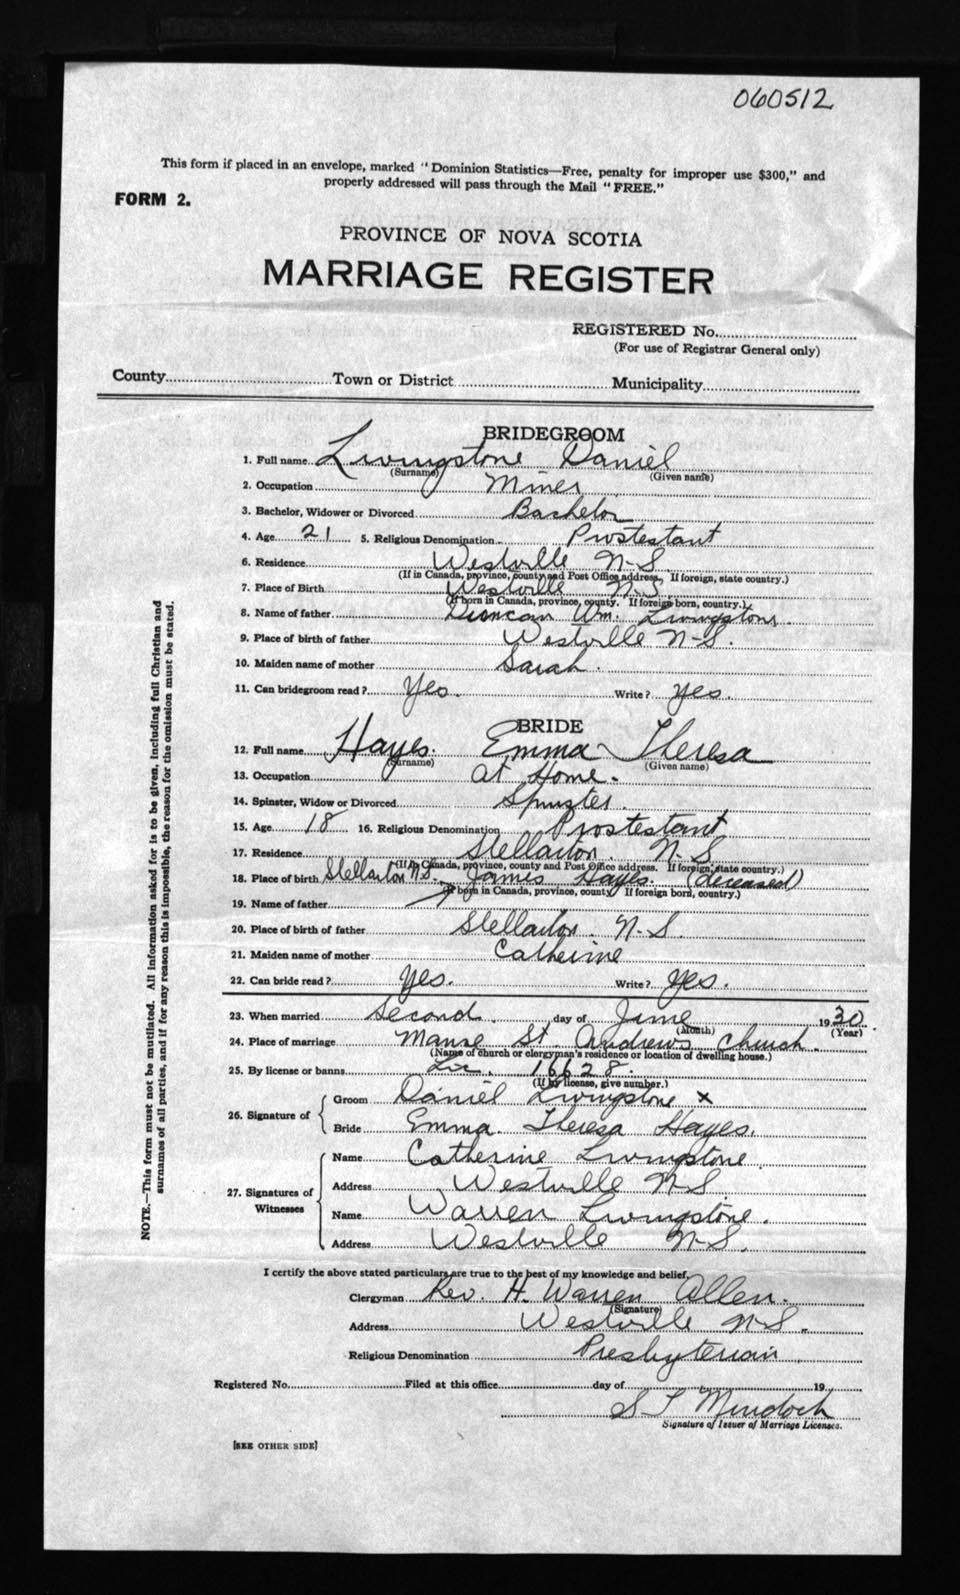 060512
This form if placed in an envelope, marked "Dominion Statistics—Free, penalty for improper use $300," and
properly addressed will pass through the Mail "FREE."
FORM 2.
PROVINCE OF NOVA SCOTIA
MARRIAGE REGISTER
REGISTERED No.
(For use of Registrar General only)
County Town or District Municipality
BRIDEGROOM
1. Full name Livingstone Daniel
(Surname) (Given name)
2. Occupation Miner
3. Bachelor, Widower or Divorced Bachelor
4. Age 21 5. Religious Denomination Prostestant
6. Residence Westville N-S.
(If in Canada, province, county and Post Office address. If foreign, state country.)
7. Place of Birth Westville N-S.
(If born in Canada, province, county. If foreign born, country.)
8. Name of father Duncan Wm. Livingstone.
9. Place of birth of father Westville N-S.
10. Maiden name of mother Sarah.
11. Can bridegroom read? Yes. Write? Yes.
BRIDE
12. Full name Hayes. Emma Theresa
(Surname) (Given name)
13. Occupation At Home.
14. Spinster, Widow or Divorced Spinster.
15. Age 18 16. Religious Denomination Prostestant
17. Residence Stellarton. N.S.
(If in Canada, province, county and Post Office address. If foreign, state country.)
18. Place of birth Stellarton N.S. James Hayes (deceased)
(If born in Canada, province, county. If foreign born, country.)
19. Name of father
20. Place of birth of father Stellarton. N-S.
21. Maiden name of mother Catherine
22. Can bride read? Yes. Write? Yes.
23. When married Second day of June 1930.
(Month) (Year)
24. Place of marriage Manse St. Andrew's Church.
(Name of church or clergyman's residence or location of dwelling house.)
25. By license or banns Lic. 16628.
(If by license, give number.)
26. Signature of
Groom Daniel Livingstone x
Bride Emma. Theresa Hayes.
27. Signatures of Witnesses
Name Catherine Livingstone.
Address Westville N-S.
Name Warren Livingstone.
Address Westville N-S.
I certify the above stated particulars are true to the best of my knowledge and belief.
Clergyman Rev. H. Warren Allen.
(Signature)
Address Westville N-S.
Religious Denomination Presbyterian
Registered No. Filed at this office day of 19
S T Murdoch
Signature of Issuer of Marriage Licenses.
[SEE OTHER SIDE]
NOTE.—This form must not be mutilated. All information asked for is to be given, including full Christian and
surnames of all parties, and if for any reason this is impossible, the reason for the omission must be stated.